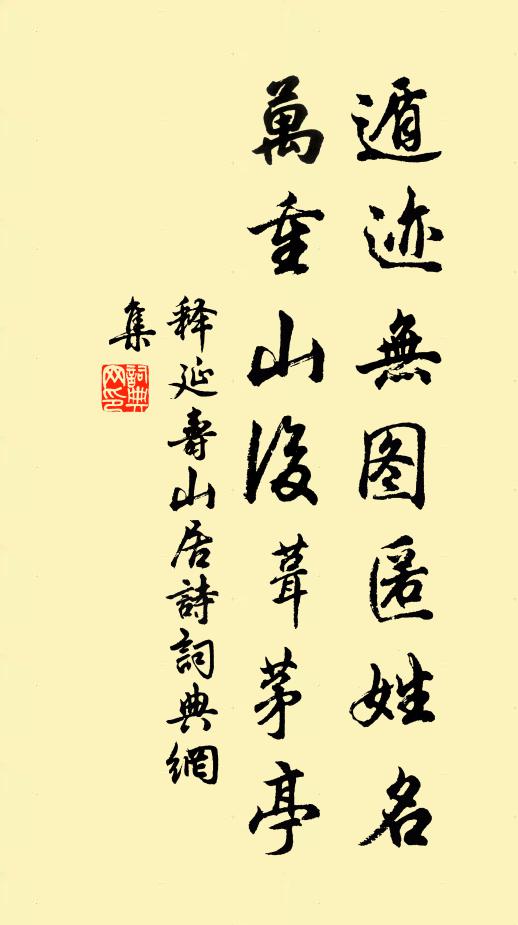 遁迹無图匿姓名
萬重山後葺茅亭
释延壽山居詩詞典網
集
詞典网印